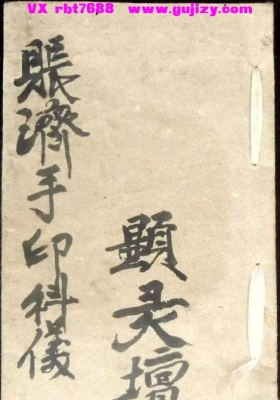 VX rbt7688 www.gujizy.com
賬濟手印科儀
顕灵壇